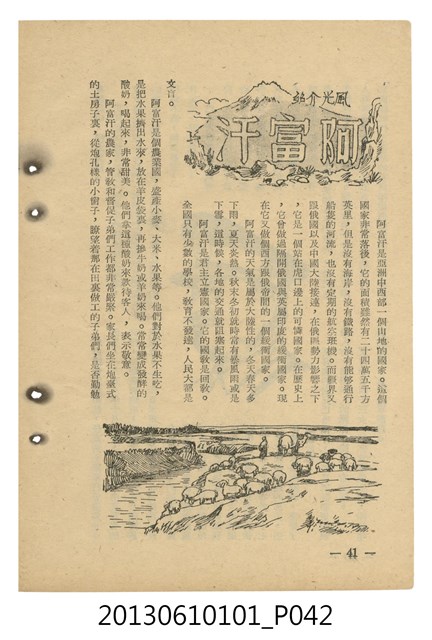 風光介紹
阿富汗
阿富汗是亞洲中西部一個山地的國家。這個
國家非常落後,它的面積雖然有二十四萬五千方
英里,但是沒有海岸,沒有鐵路,沒有能够通行
船隻的河流,也沒有定期的航空班機。而疆界又
跟俄國以及中國大陸接連,在俄國勢力影響之下
,它是一個站在虎口邊上的可憐國家。在歷史上
,它曾做過隔開俄國與英屬印度的緩衝國家。現
在它又做個西方跟俄帝間的一個緩衝國家。
阿富汗的天氣是屬於大陸性的,冬天春天多
下雨,夏天炎熱。秋末冬初就時常有暴風雨或是
下雪,這時候,各地的交通就阻塞起來。
阿富汗是君主立憲國家。它的國教是回教。
全國只有少數的學校,教育不發達,人民大部是
文盲。
阿富汗是個農業國,盛產小麥、大米、水果等。他們對於水果不生吃,
是把水果擠出水來,放在羊皮袋裏,再摻牛奶或羊奶來喝。常常變成發酵的
酸奶,喝起來,非常甜美。他們拿這種酸奶來款待客人,表示敬意。
阿富汗的農家,管教和督促子弟們工作都非常嚴緊。家長們坐在炮臺式
的土房子裏,從炮孔樣的小窗子,瞭望着那在田裏做工的子弟們,是否勤勉
— 41 —
20130610101_P042